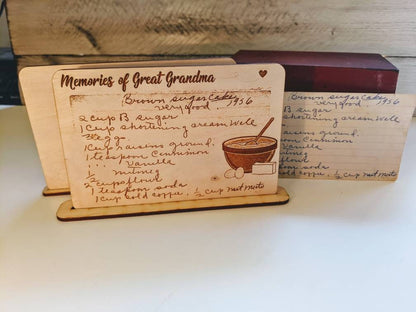 Memories of Great Grandma
Brown sugar Cake
very good 1956
2 cup B sugar
1 Cup shortening cream well
2 eggs
1 Cup raisins ground.
1 teaspoon Cinnimon
" " Vanilla
½ nutmeg
2 cups flour
1 teaspoon soda
1 Cup cold coffee, ½ cup nut meats
Brown sugar Cake
very good 1956
B sugar
shortening cream well
raisins ground.
poon Cinnimon
Vanilla
nutmeg
flour
poon soda
cold coffee, ½ cup nut meats